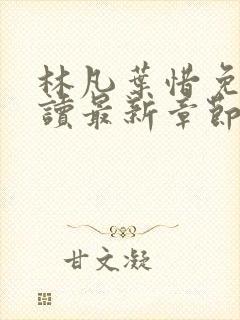 林凡葉惜免
讀最新章節
甘文凝